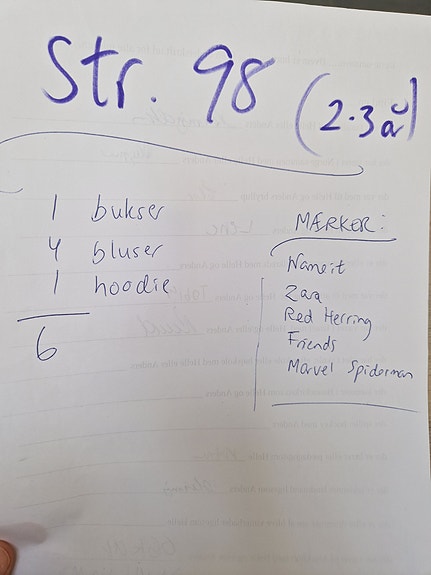 Str. 98 (2-3 år)
1 bukser
4 bluser
1 hoodie
6
MÆRKER:
Nameit
Zara
Red Herring
Friends
Marvel Spiderman